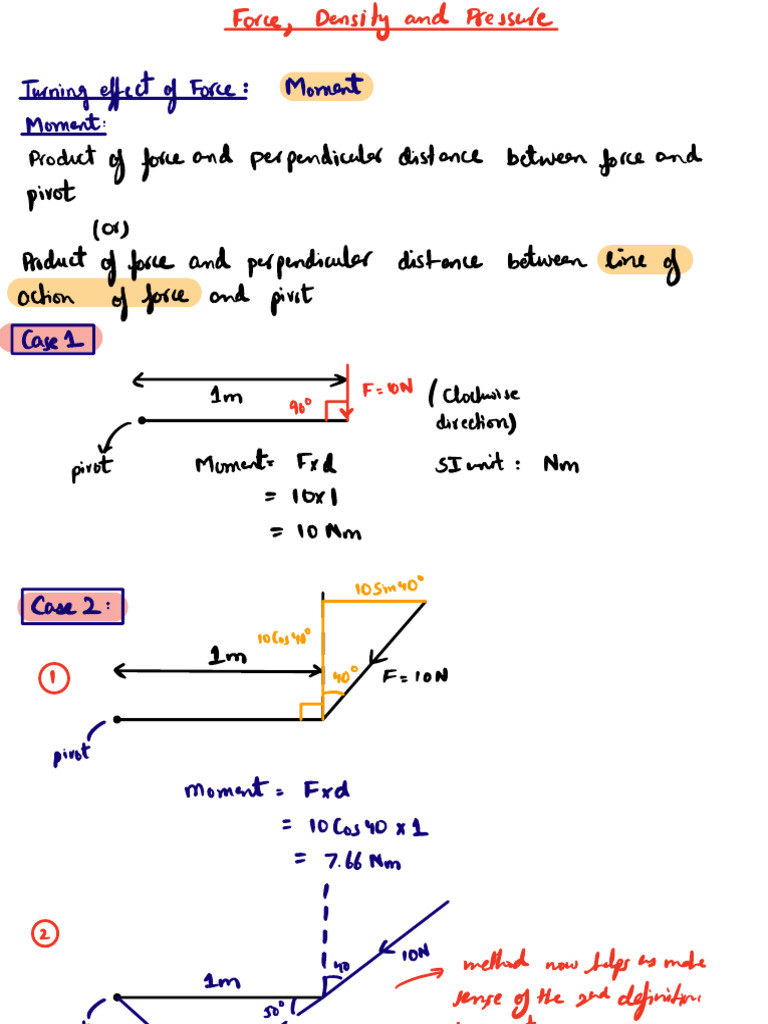 Force, Density and Pressure
Turning effect of Force: Moment
Moment:
Product of force and perpendicular distance between force and
pivot
(or)
Product of force and perpendicular distance between line of
action of force and pivot
Case 1
1m
F = 10N
(Clockwise
direction)
90°
pivot
Moment = F x d
SI unit : Nm
= 10 x 1
= 10 Nm
Case 2 :
10 Sin 40°
10 Cos 40°
1m
40°
F = 10N
1
pivot
Moment = F x d
= 10 Cos 40 x 1
= 7.66 Nm
2
40
10N
1m
50°
method now helps us make
sense of the 2nd definition